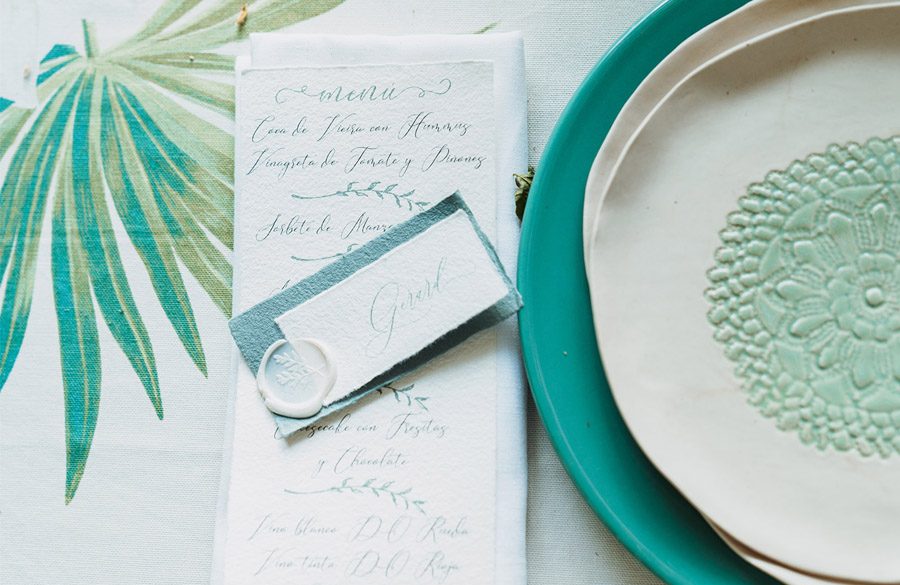 menu
Coca de Vieira con Hummus
Vinagreta de Tomate y Piñones
Sorbete de
Gerard
con Fresitas
y Chocolate
Vino blanco D.O Rueda
Vino tinto D.O Rioja